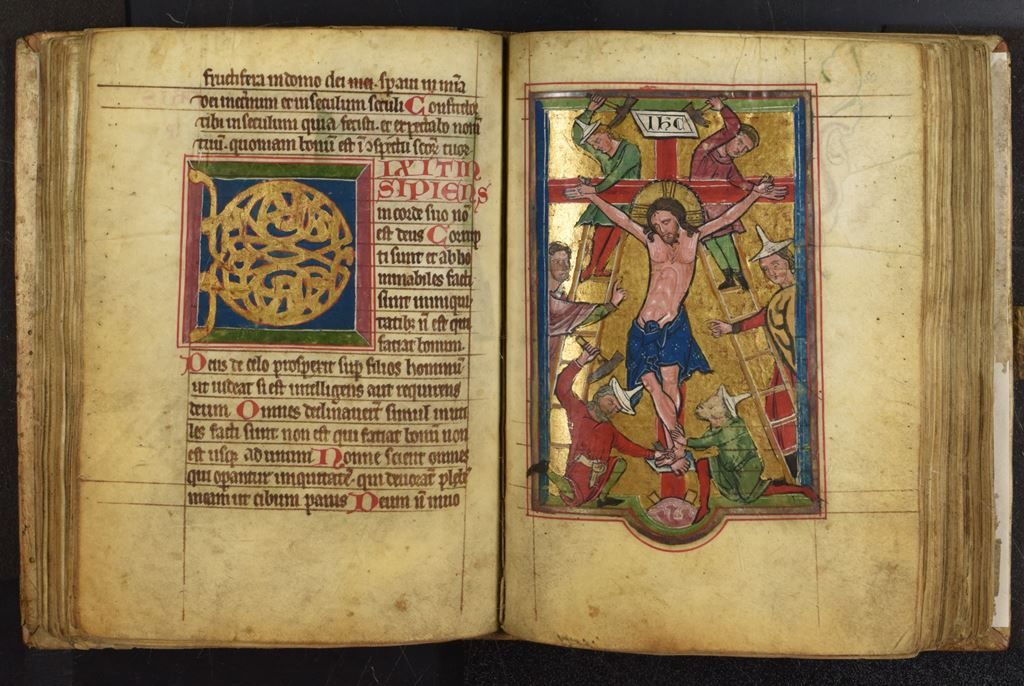 fructifera in domo dei mei. sp̄aui in mīa
dei meternum et in seculum seculi Confitebor
tibi in seculum quia fecisti. et expectabo nom̄
tuū. quoniam bonū est ī ɔspectu scōꝝ tuoꝝ
DIXIT IN
SIPIENS
in corde suo nō
est deus Corrup
ti sunt et abho
minabiles facti
sunt ininiqui
tatibꝫ n̄ est qui
faciat bonum.
Deus de celo prosperit sup̄ filios hominū
ut uideat si est intelligens aut requirens
deum. Omnes declinauer̄t simul inuti
les facti sunt non est qui faciat bonū non
est usqꝫ ad unum Nonne scient omnes
qui operantur iniquitatē. qui deuorāt plebē
meam ut cibum panis Deum n̄ inuo
IHC